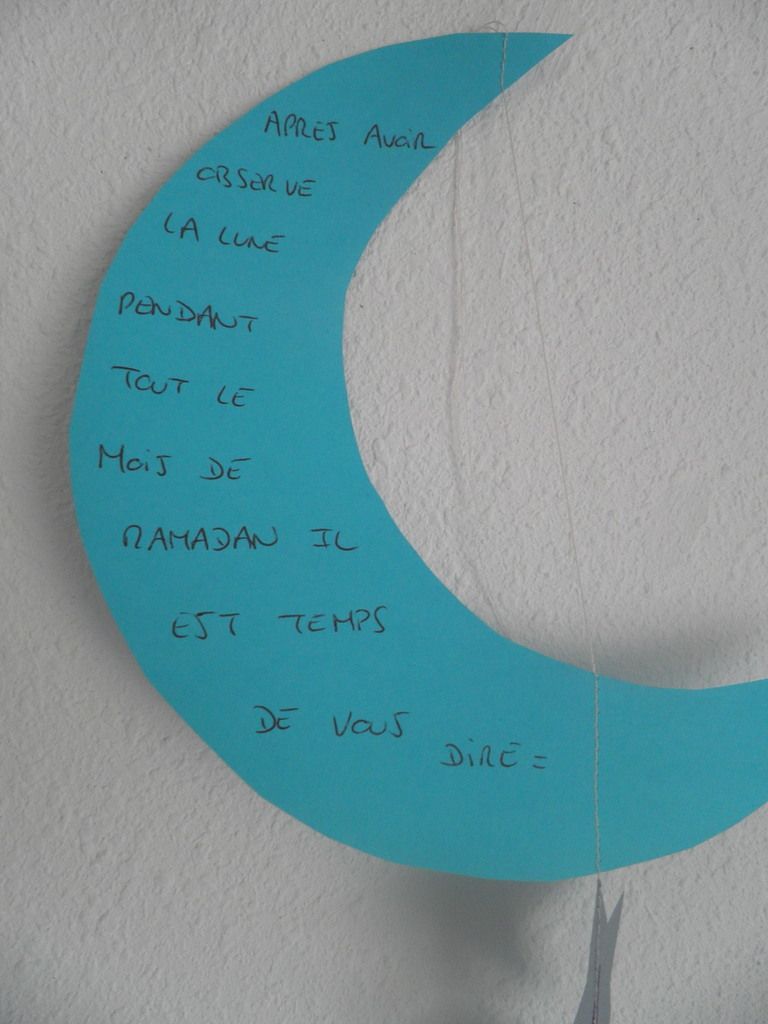 APRES AVOIR
OBSERVE
LA LUNE
PENDANT
TOUT LE
MOIS DE
RAMADAN IL
EST TEMPS
DE VOUS
DIRE =